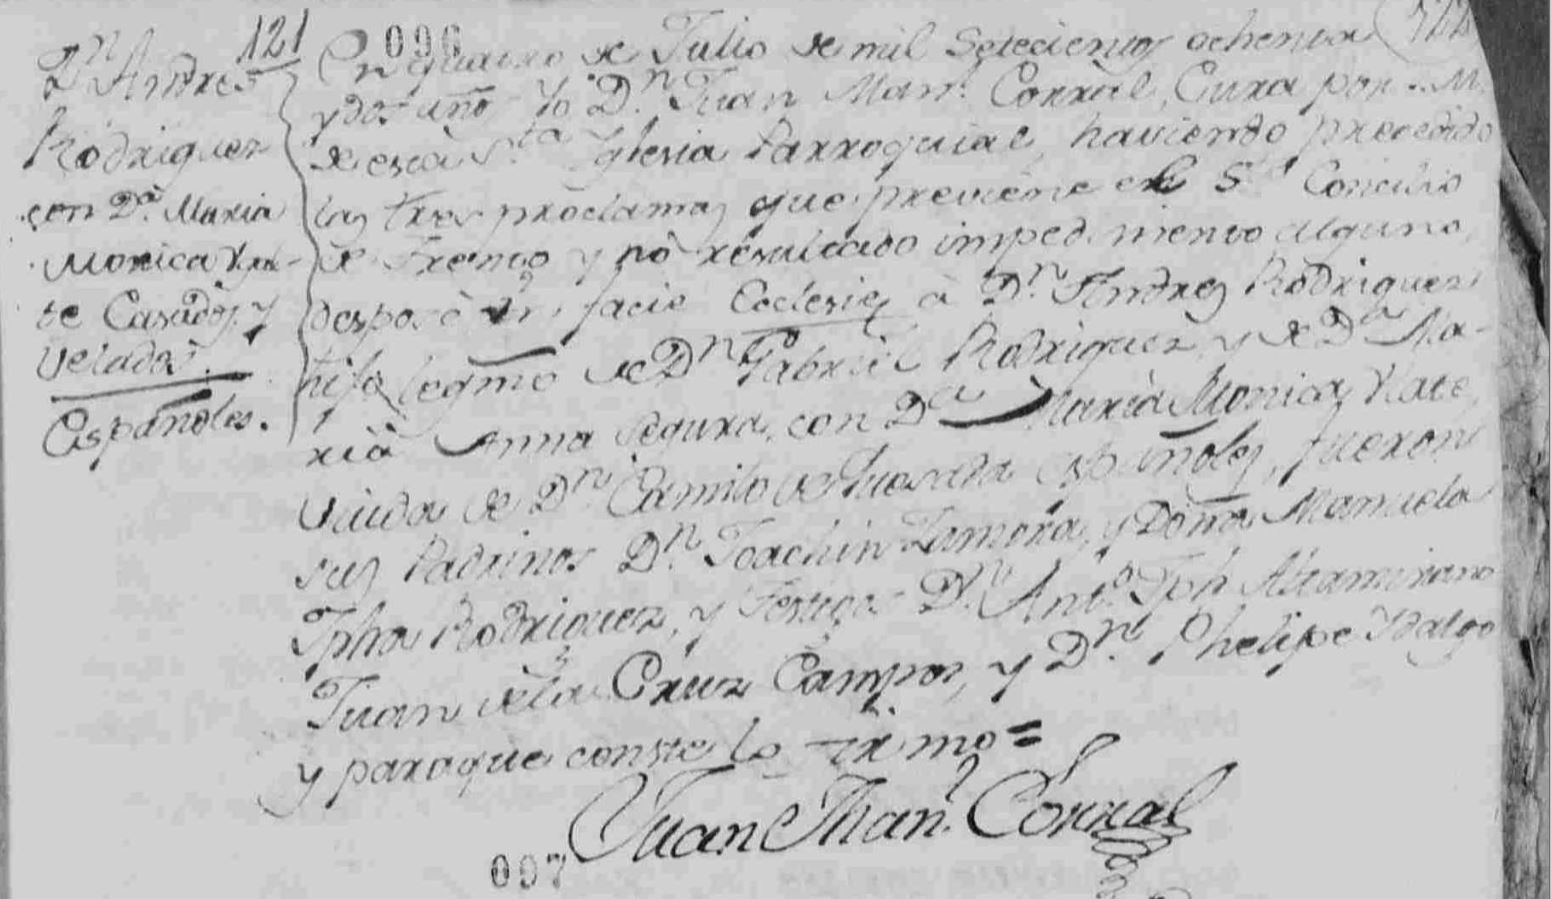 121
096
522
Dn Andres
Rodriguez
con Da. Maria
Monica Yat-
te Casados y
Velados.
Españoles.
En quatro de Julio de mil Setecientos ochenta
y dos años Yo Dn. Juan Manl. Corral, Cura por S. M.
de esta Sta. Yglesia Parroquial, haviendo precedido
las tres proclamas que previene el Sto. Concilio
de Trento y no resultado impedimento alguno,
desposè in facie Ecclesiæ à Dn. Andres Rodriguez
hijo legmo de Dn Gabriel Rodriguez y de Da Ma-
ria Anna Segura, con Da Maria Monica Yate,
Viuda de Dn. Camilo de Quesada españoles, fueron
sus Padrinos Dn. Joachin Zamora, y Doña Manuela
Jpha Rodriguez, y Testigos Dn. Anto. Jph Altamirano
Juan de la Cruz Campos, y Dn. Phelipe Ydalgo
y para que conste lo firmo =
Juan Manl. Corral
097